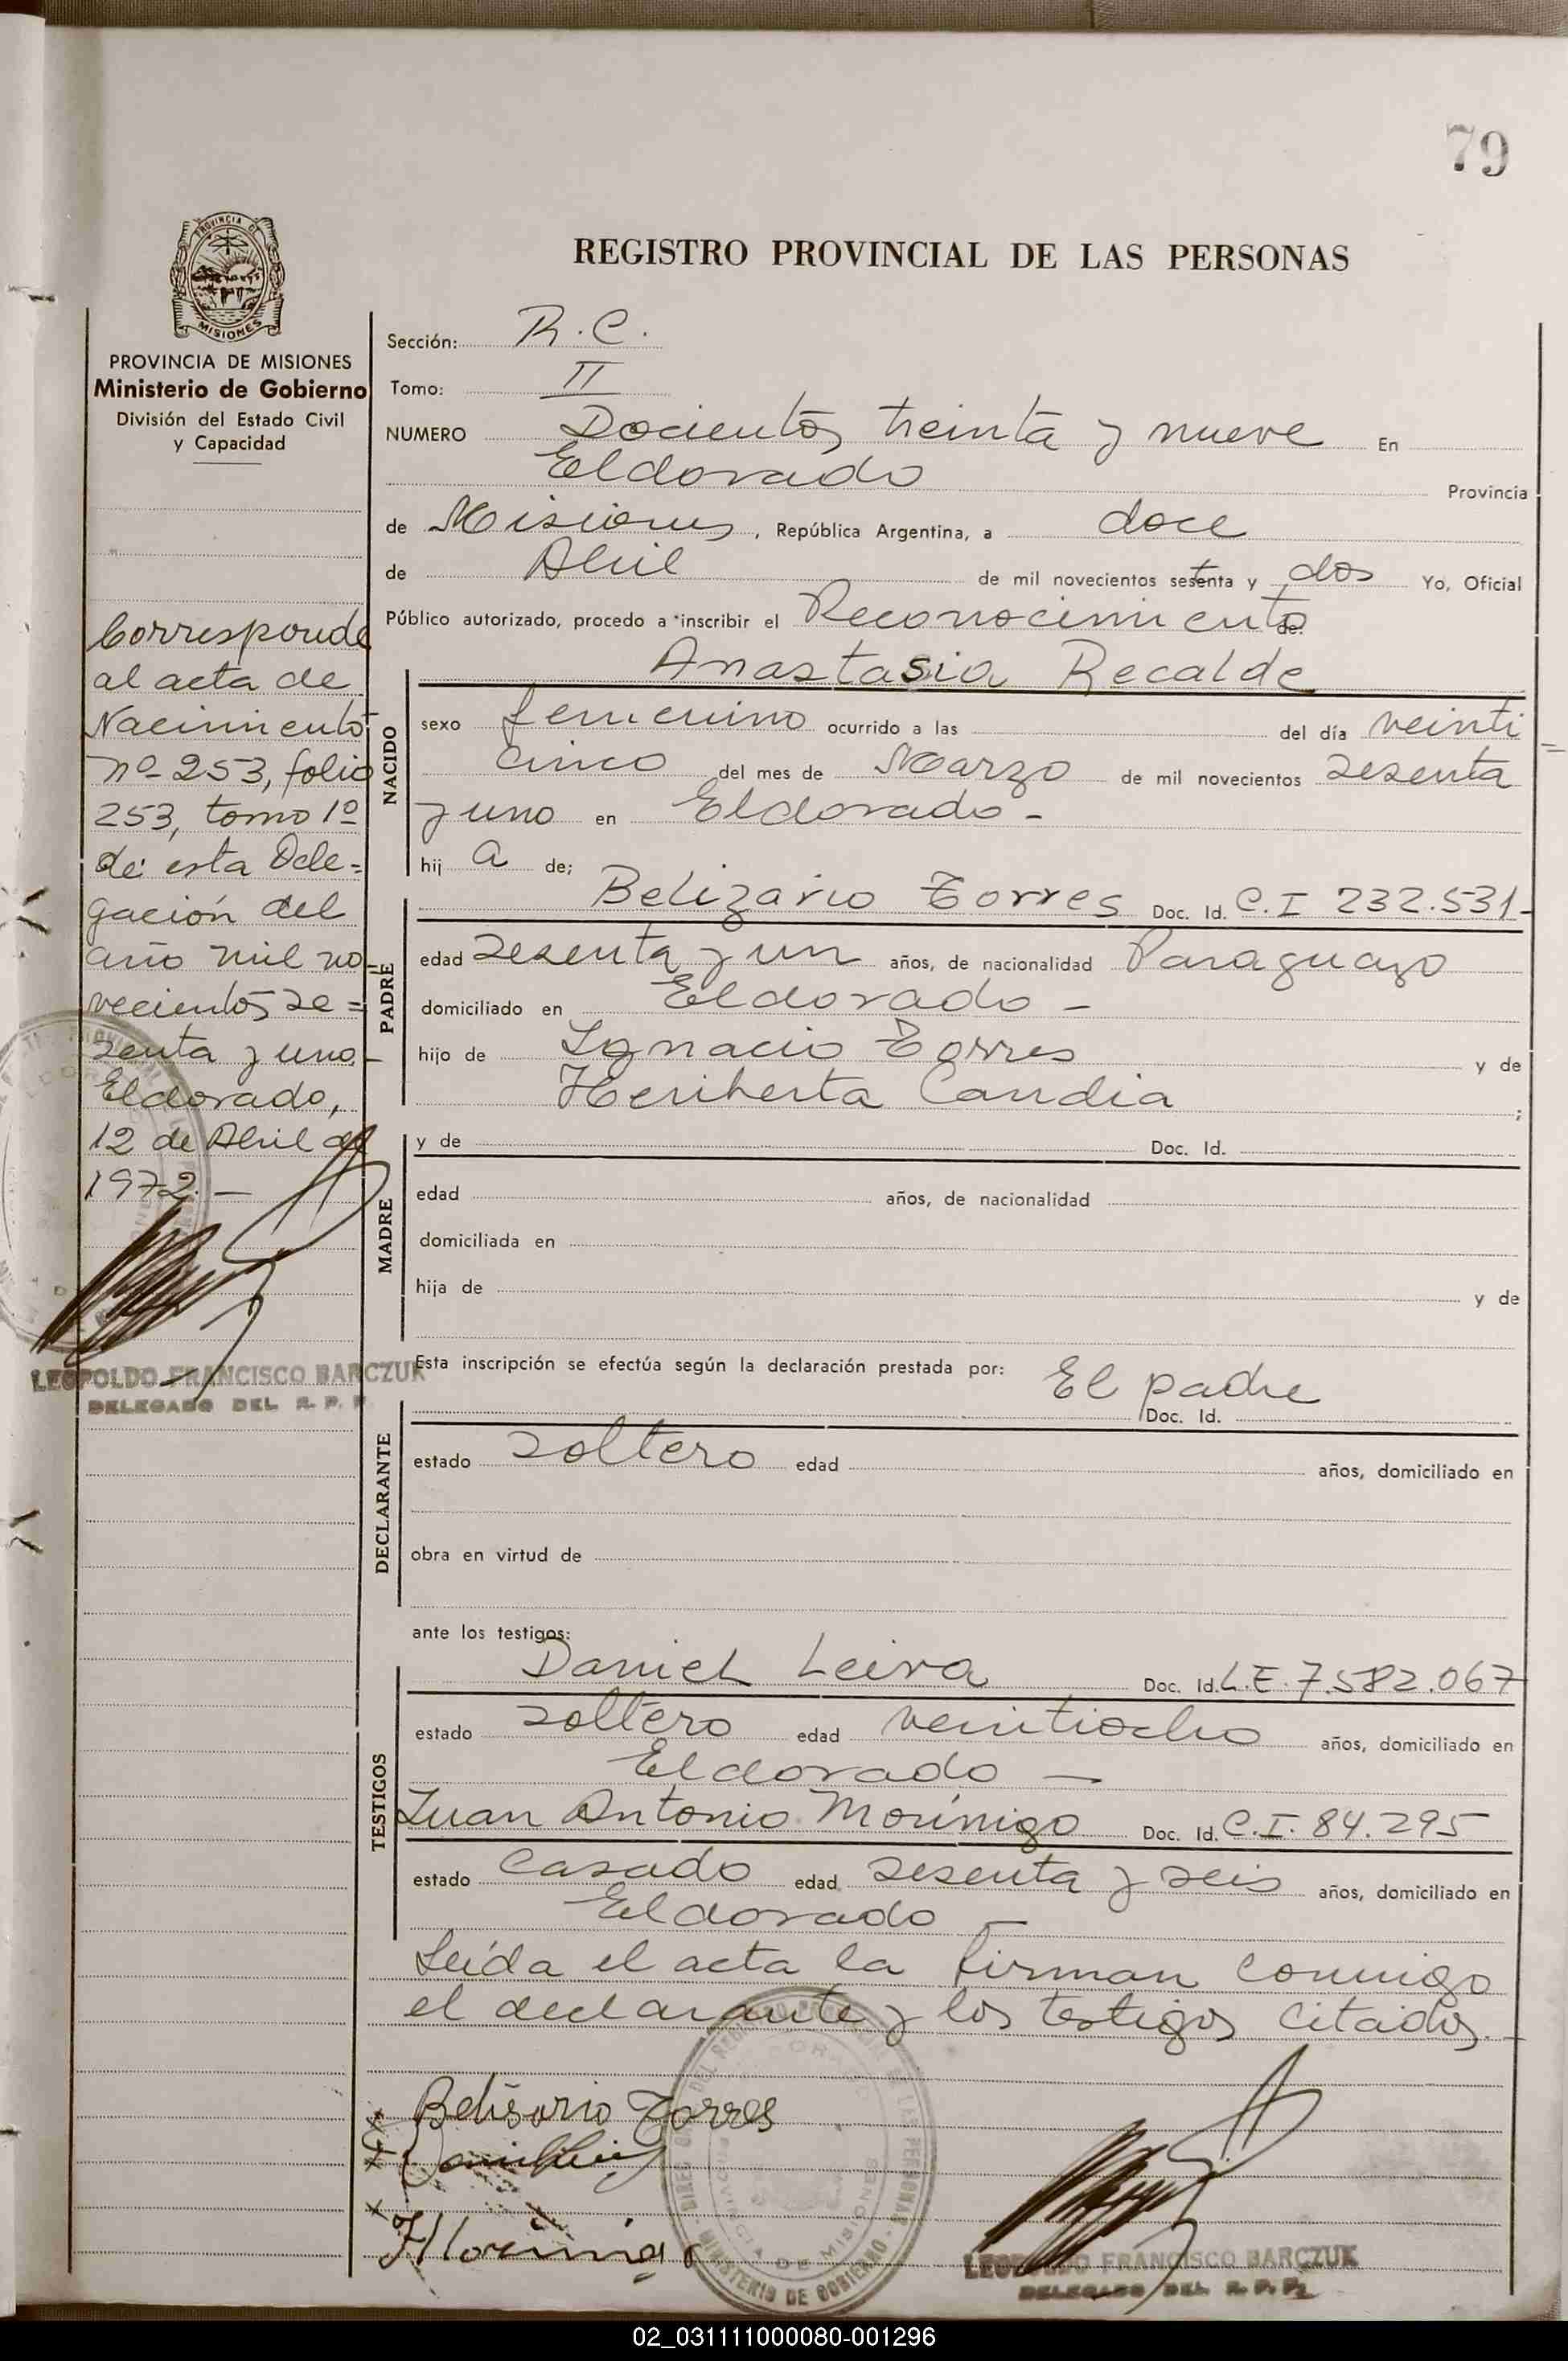 79
REGISTRO PROVINCIAL DE LAS PERSONAS
PROVINCIA DE MISIONES
Ministerio de Gobierno
División del Estado Civil
y Capacidad
Corresponde
al acta de
Nacimiento
nº 253, folio
253, tomo 1º
de esta Dele=
gación del
año mil no-
vecientos se=
senta y uno.-
Eldorado,
12 de Abril de
1972.-
LEOPOLDO FRANCISCO BARCZUK
DELEGADO DEL R. P. P.
Sección: R. C.
Tomo: II
NUMERO Docientos treinta y nueve En
Eldorado Provincia
de Misiones, República Argentina, a doce
de Abril de mil novecientos setenta y dos Yo, Oficial
Público autorizado, procedo a inscribir el Reconocimiento de:
Anastasia Recalde
NACIDO
sexo femenino ocurrido a las del día veinti
cinco del mes de Marzo de mil novecientos sesenta
y uno en Eldorado -
hij a de;
PADRE
Belizario Torres Doc. Id. C.I 232.531-
edad sesenta y un años, de nacionalidad Paraguayo
domiciliado en Eldorado -
hijo de Ignacio Torres y de
Heriberta Candia ;
MADRE
y de Doc. Id.
edad años, de nacionalidad
domiciliada en
hija de y de
Esta inscripción se efectúa según la declaración prestada por: El padre
Doc. Id.
DECLARANTE
estado soltero edad años, domiciliado en
obra en virtud de
ante los testigos:
TESTIGOS
Daniel Leiva Doc. Id. L.E. 7.582.067
estado soltero edad veintiocho años, domiciliado en
Eldorado -
Juan Antonio Morínigo Doc. Id. C.I. 84.295
estado casado edad sesenta y seis años, domiciliado en
Eldorado -
Leída el acta la firman conmigo
el declarante y los testigos citados.-
Belisario Torres
JMorinigo
LEOPOLDO FRANCISCO BARCZUK
DELEGADO DEL R. P. P.
02_031111000080-001296